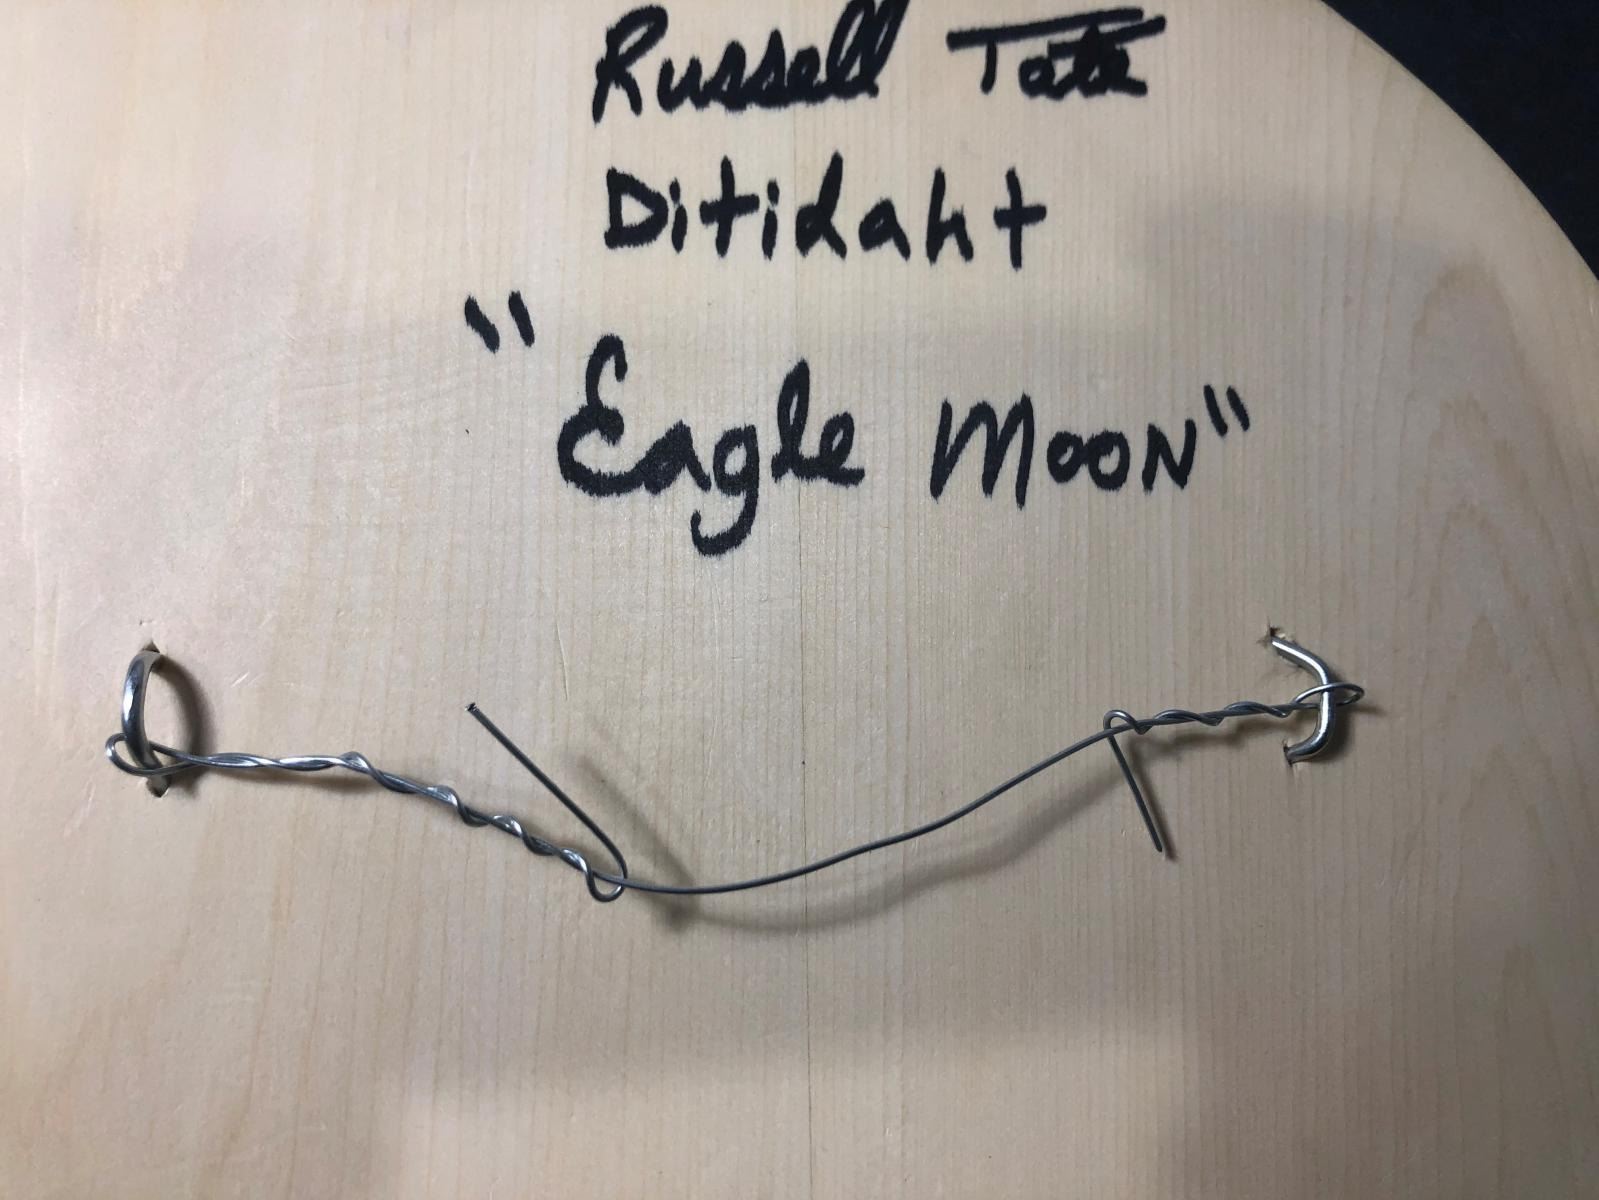 Russell Tate
Ditidaht
"Eagle Moon"